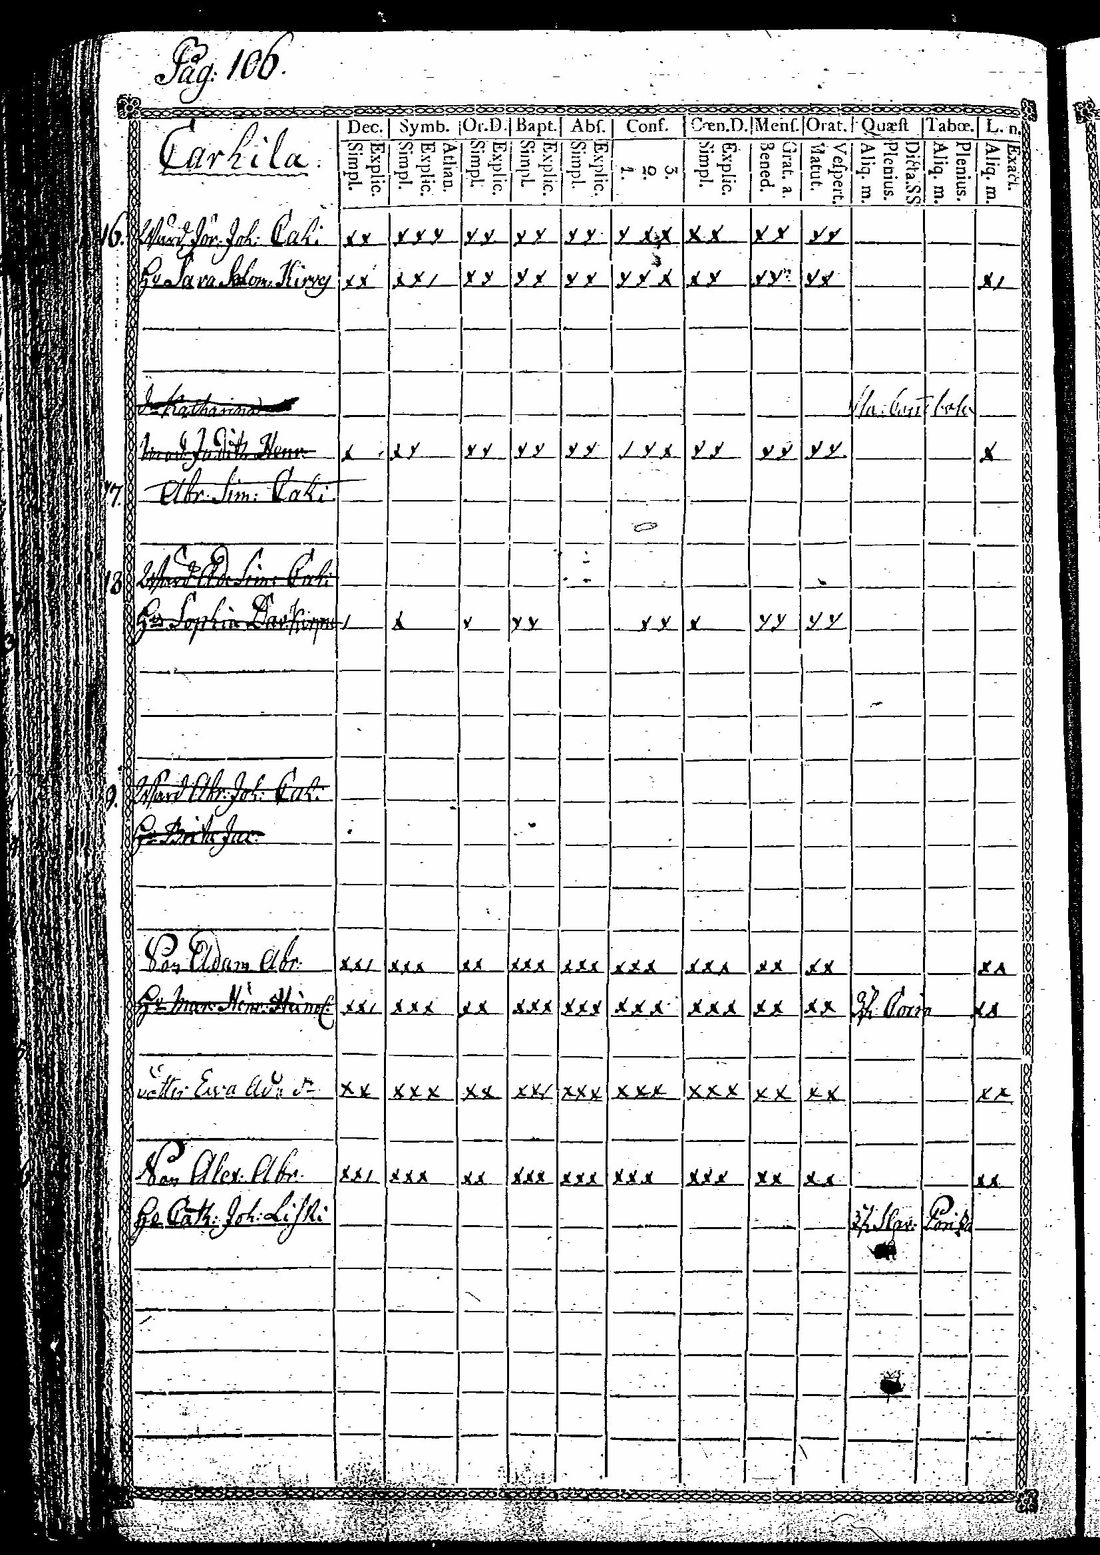 Pag: 106.
Carhila. Dec. Symb. Or.D. Bapt. Abs. Conf. Cœn.D. Mens. Orat. Quæst Tabœ. L. n.
Simpl. Explic. Simpl. Explic. Athan. Simpl. Explic. Simpl. Explic. Simpl. Explic. 1. 2. 3. Simpl. Explic. Bened. Grat. a. Matut. Vespert. Aliq. m. Plenius. Dicta.SS Aliq. m. Plenius. Aliq. m. Exact.
16. Wärd Jör. Joh: Cahi xx xxx xx xx xx xxx xx xx xx
Hu Sara Salom. Hirvy xx xx1 xx xx xx xxx xx xx xx x1
Dr Katharina
Mod. Judith Henr x xx xx xx xx 1xx xx xx xx x
17. Abr. Sim: Cahi
18 Wärd Ad. Sim: Cahi
Hu Sophia Dav. 1 x x xx xx x xx xx
9. Wärd Abr. Joh. Cahi
Hu Brita Jac.
Son Adam Abr. xx1 xxx xx xxx xxx xxx xxx xx xx xx
Hu Mar. Henr. xx1 xxx xx xxx xxx xxx xxx xx xx xx
Ewa xx xxx xx xx1 xxx xxx xxx xx xx xx
Son Alex. Abr. xx1 xxx xx xxx xxx xxx xxx xx xx xx
Hu Cath: Joh: Liski